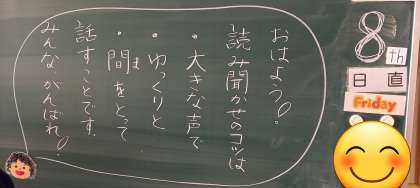 8th
日直
Friday
おはよう!
読み聞かせのコツは
・大きな声で
・ゆっくりと
・間をとって
ま
話すことです。
みんな、がんばれ!